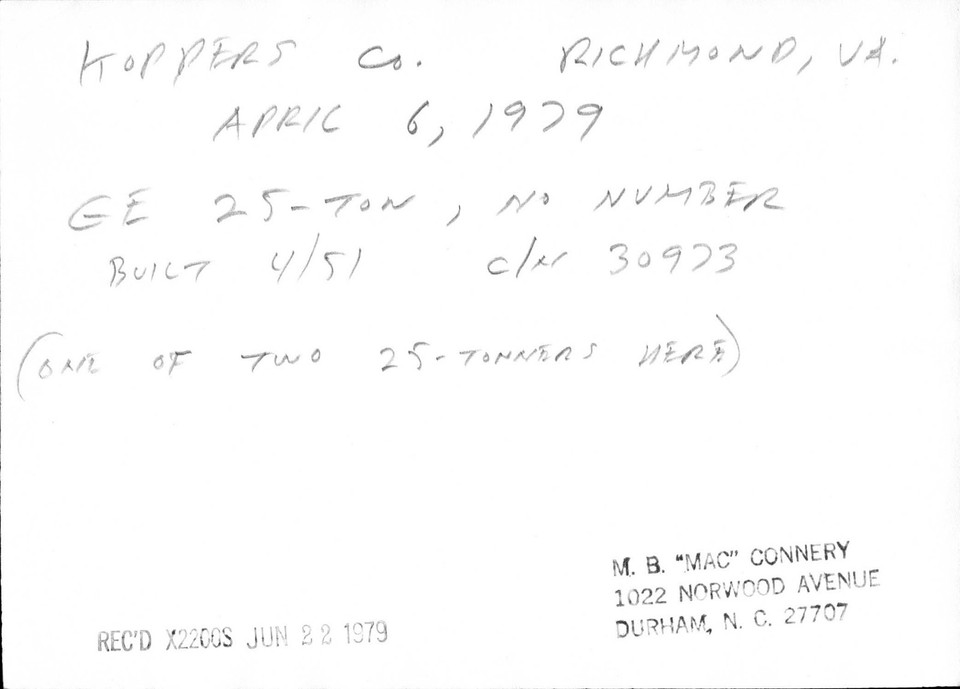 KOPPERS Co. RICHMOND, VA.
APRIL 6, 1979
GE 25-TON, NO NUMBER
BUILT 4/51 c/n 30973
(ONE OF TWO 25-TONNERS HERE)
M. B. "MAC" CONNERY
1022 NORWOOD AVENUE
DURHAM, N. C. 27707
REC'D X2200S JUN 22 1979